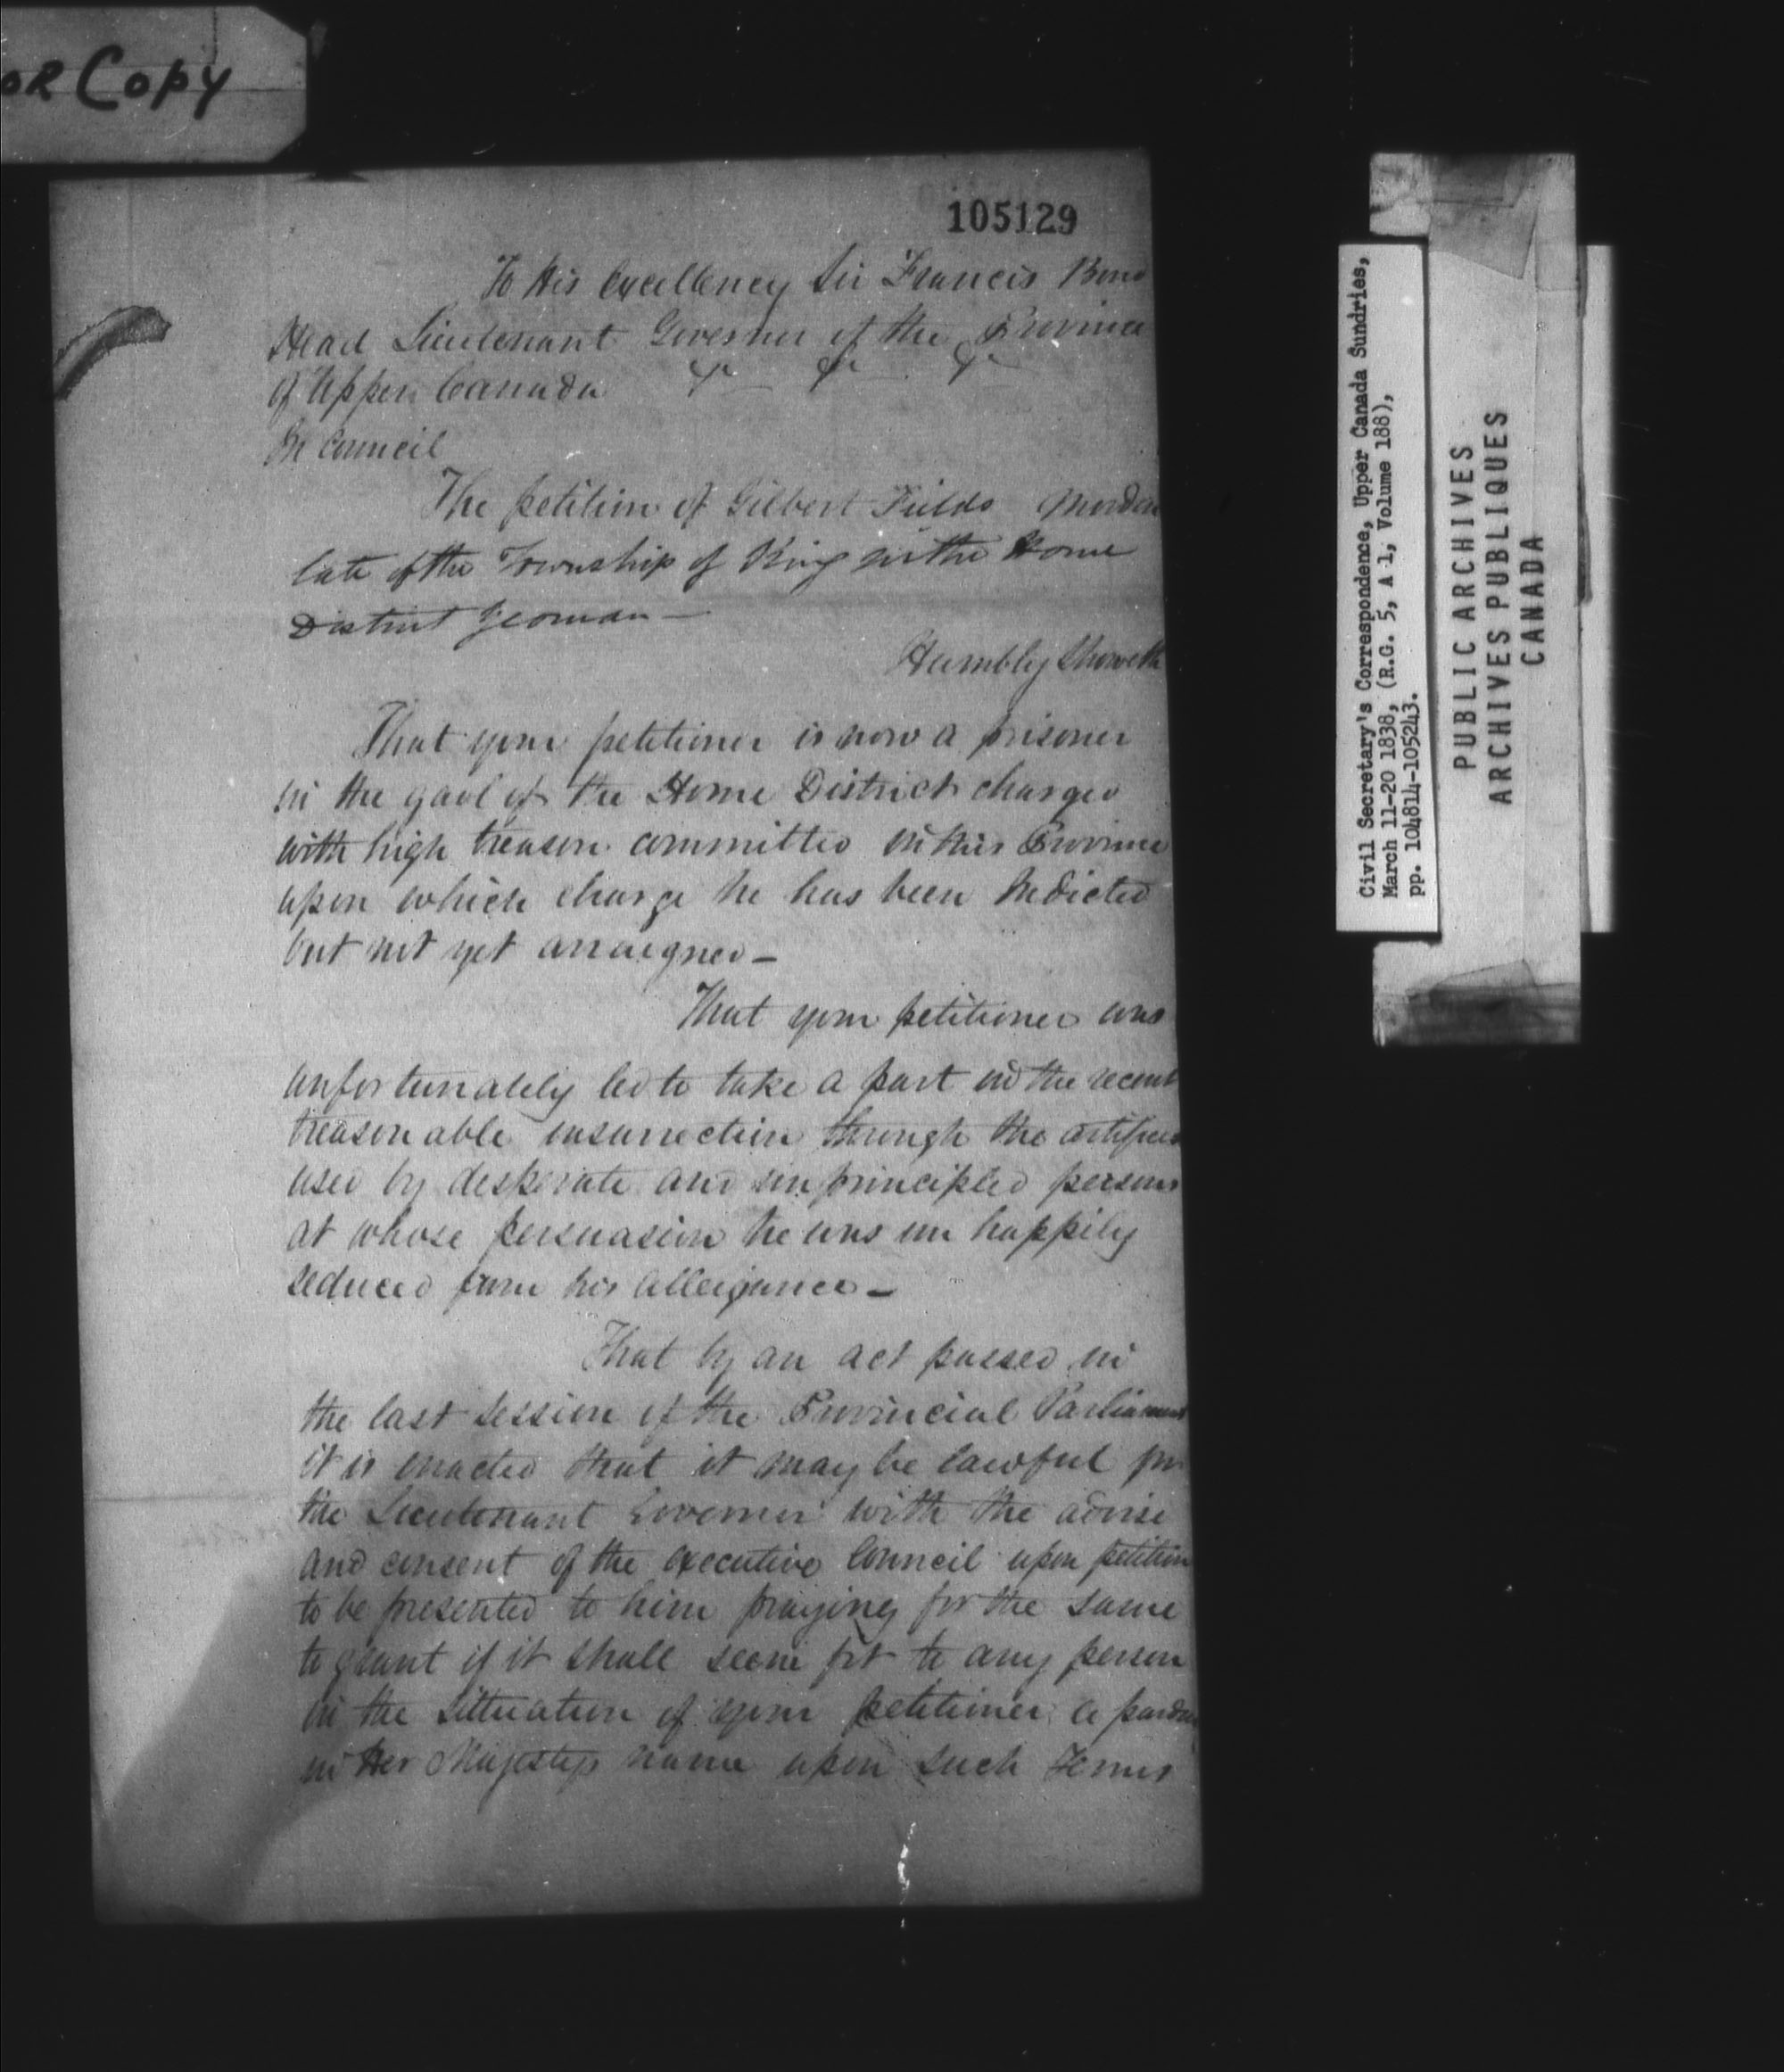 OR Copy
105129
To His Excellency Sir Francis Bond
Head Lieutenant Governor of the Province
of Upper Canada &c &c &c
In Council
The petition of Gilbert Fields Morden
late of the Township of King in the Home
District Yeoman —
Humbly Sheweth
That your petitioner is now a prisoner
in the gaol of the Home District charged
with high treason committed in this Province
upon which charge he has been Indicted
but not yet arraigned —
That your petitioner was
unfortunately led to take a part in the recent
treasonable insurrection through the artifices
used by desperate and unprincipled persons
at whose persuasion he was unhappily
seduced from his alleigance —
That by an act passed in
the last Session of the Provincial Parliament
it is enacted that it may be lawful for
the Lieutenant Governor with the advise
and consent of the Executive Council upon petition
to be presented to him praying for the same
to grant if it shall seem fit to any person
in the Sittuation of your petitioner a pardon
in Her Majestys name upon such terms
Civil Secretary's Correspondence, Upper Canada Sundries,
March 11-20 1838, (R.G. 5, A 1, Volume 188),
pp. 104814-105243.
PUBLIC ARCHIVES
ARCHIVES PUBLIQUES
CANADA